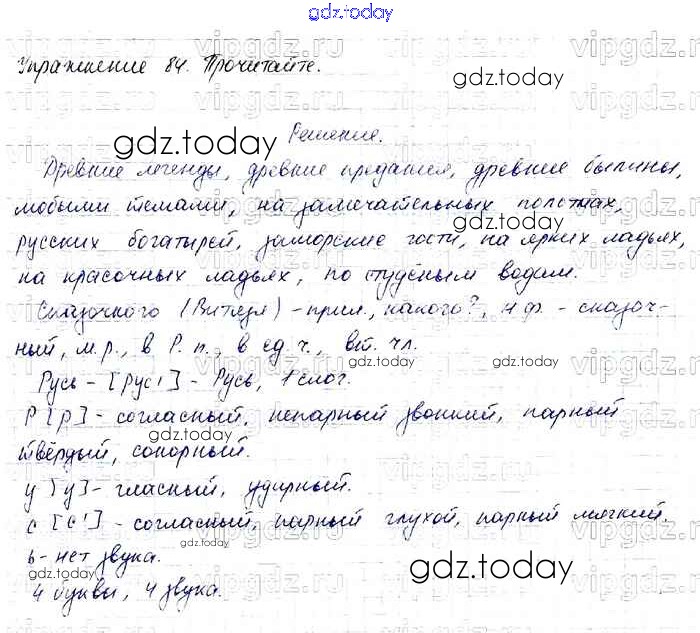 gdz.today
Упражнение 84. Прочитайте.
gdz.today
gdz.today
Решение.
Древние легенды, древние предания, древние былины,
любыми темами, на замечательных полотнах,
gdz.today
русских богатырей, заморские гости, на ярких ладьях,
на красочных ладьях, по студёным водам.
Сказочного (Витязя) - прил., какого?, н.ф. - сказоч-
ный, м.р., в Р.п., в ед.ч., вт. чл.
gdz.today
Русь - [рус'] - Русь, 1 слог.
Р [р] - согласный, непарный звонкий, парный
твёрдый, сонорный.
gdz.today
у [у] - гласный, ударный.
с [с'] - согласный, парный глухой, парный мягкий.
ь - нет звука.
gdz.today
gdz.today
4 буквы, 4 звука.
vipgdz.ru